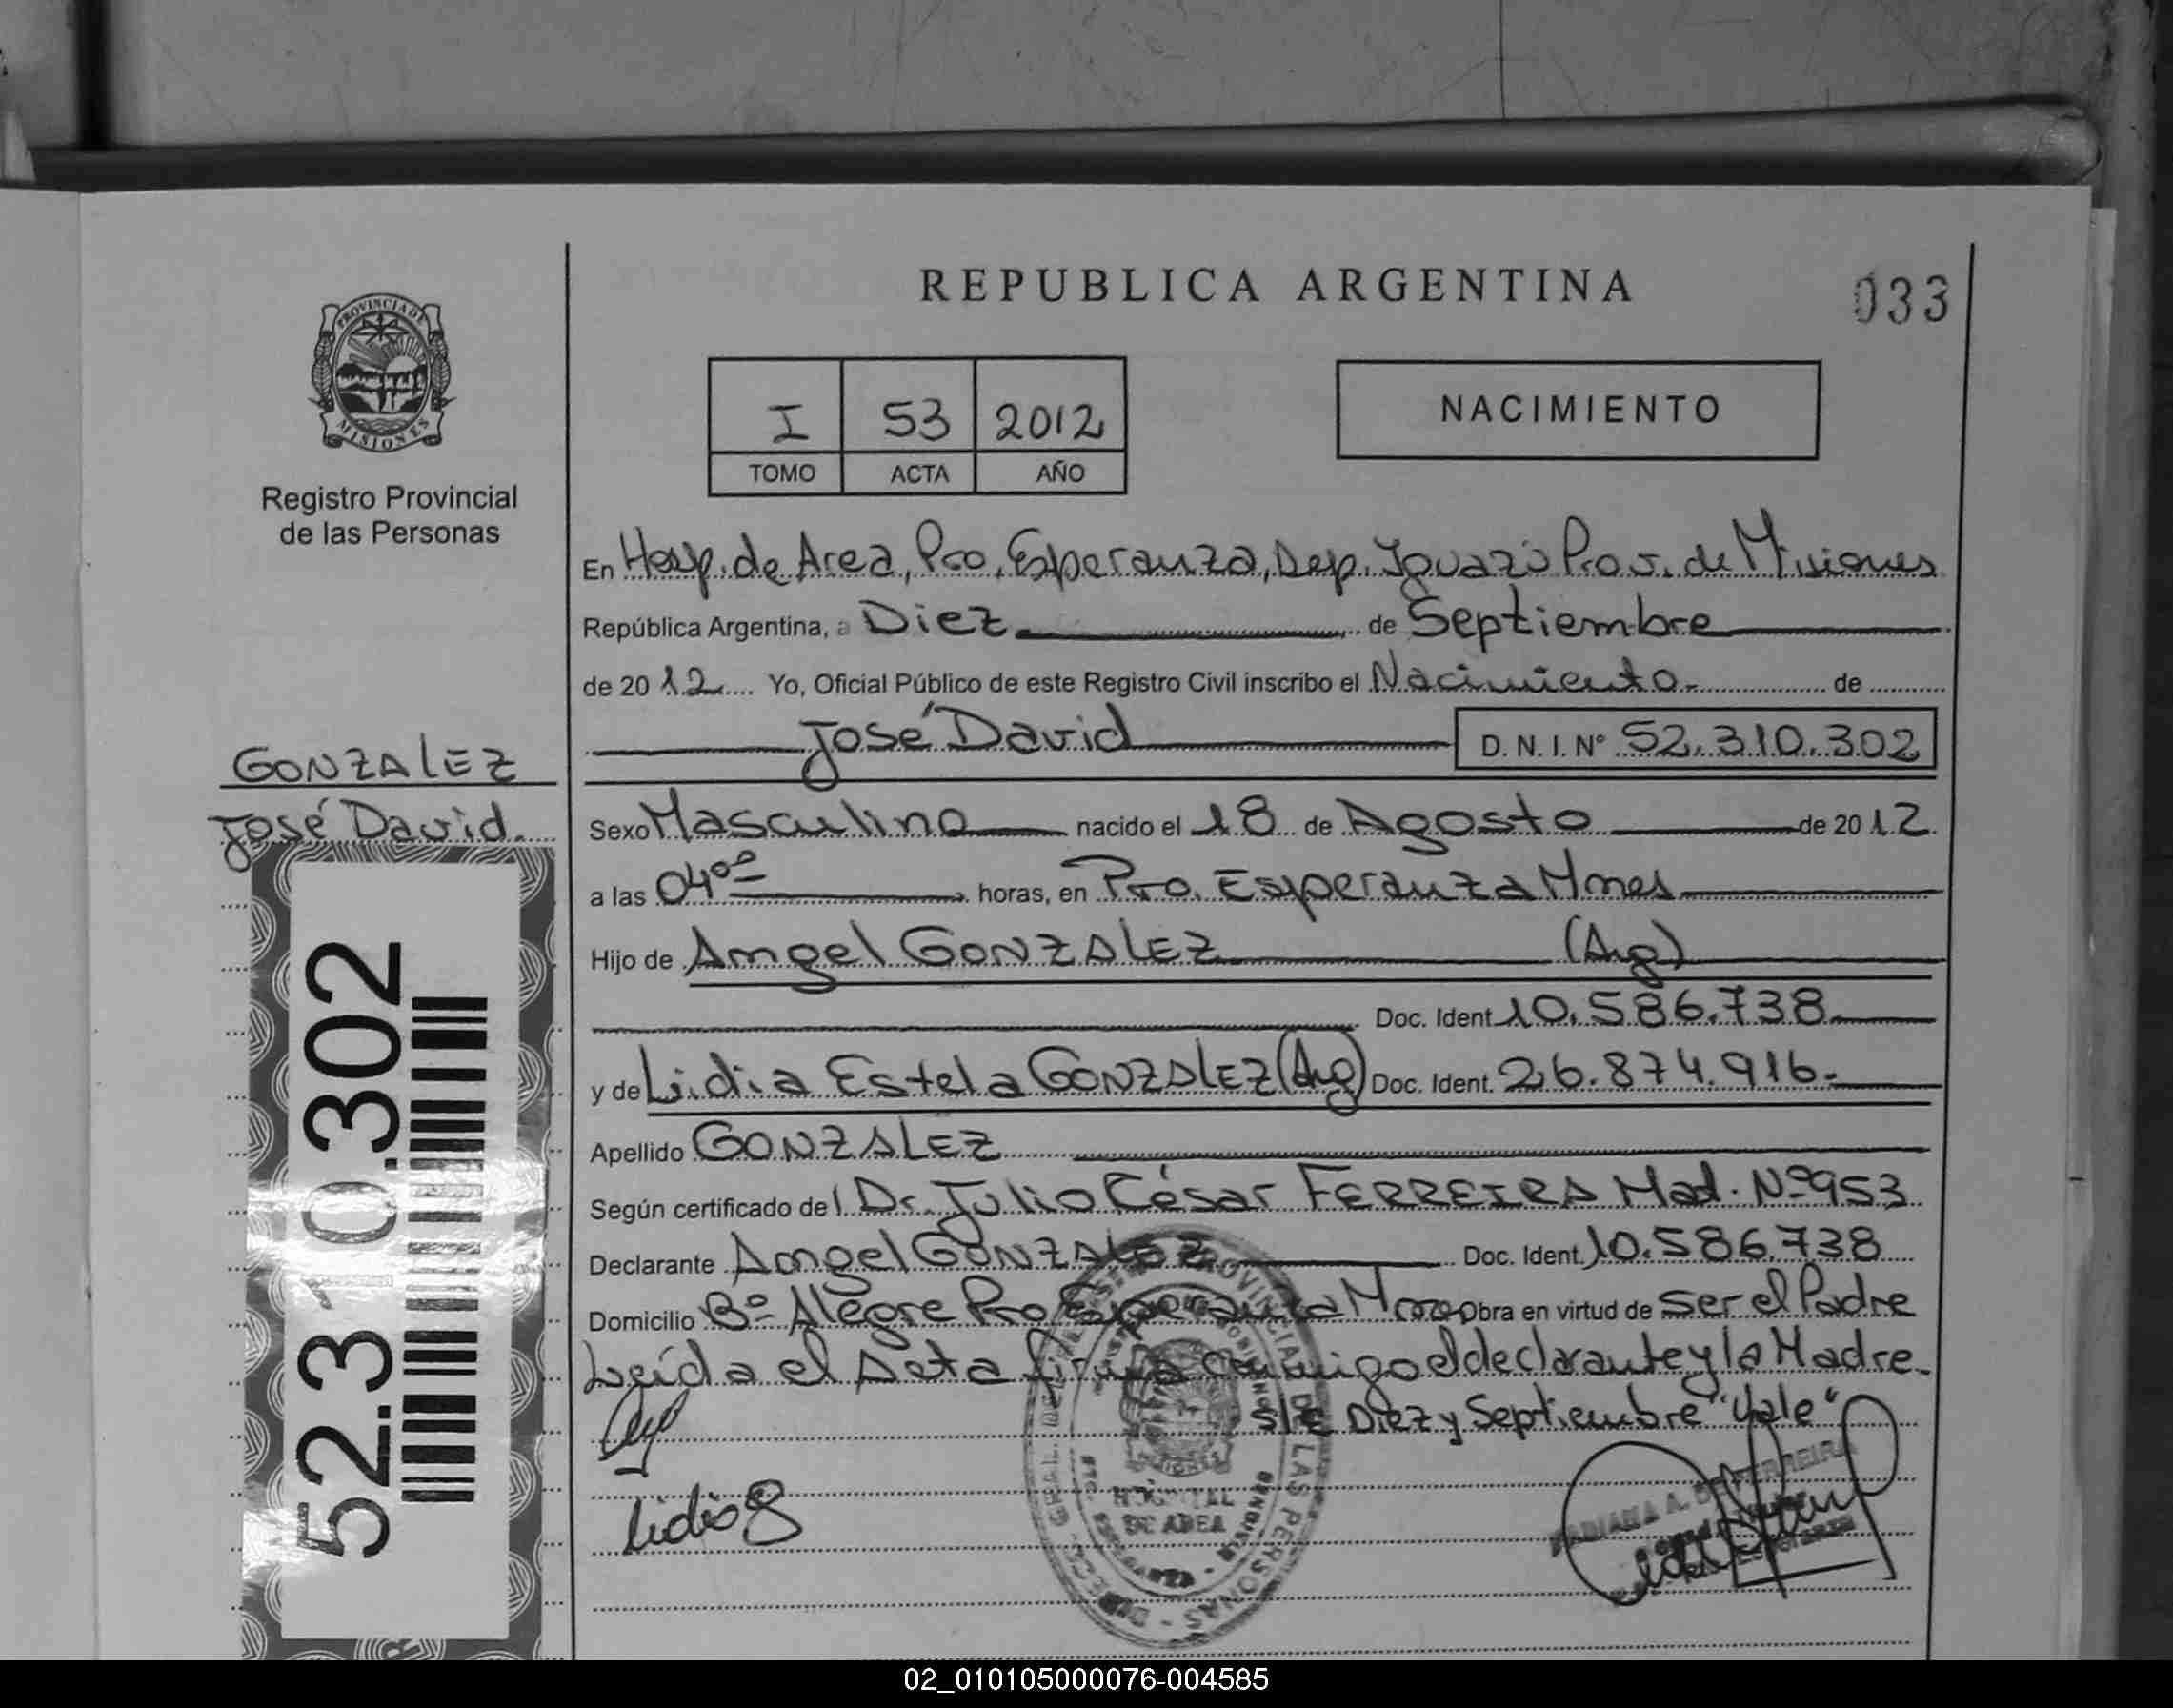 REPUBLICA ARGENTINA
033
PROVINCIA DE
MISIONES
Registro Provincial
de las Personas
I 53 2012
TOMO ACTA AÑO
NACIMIENTO
En Hosp. de Area, Pto. Esperanza, Dep. Iguazú Prov. de Misiones
República Argentina, a Diez de Septiembre
de 20 12 Yo, Oficial Público de este Registro Civil inscribo el Nacimiento.- de
José David D. N. I. Nº 52.310.302
GONZALEZ
José David.
Sexo Masculino nacido el 18 de Agosto de 20 12
a las 04ºº horas, en Pto. Esperanza Mnes
Hijo de Angel GONZALEZ (Arg)
Doc. Ident. 10.586.738.
y de Lidia Estela GONZALEZ (Arg) Doc. Ident. 26.874.916.-
Apellido GONZALEZ
Según certificado de l Dr. Julio César FERREIRA Mat. Nº 953
Declarante Angel GONZALEZ Doc. Ident. 10.586.738
Domicilio Bº Alegre Pto Esperanza Mnes Obra en virtud de ser el Padre
Leída el Acta firma conmigo el declarante y la Madre.
S/E Diez y Septiembre "Vale"
Lidia G
PROVINCIAL DE LAS PERSONAS
HOSPITAL
DE AREA
FABIANA A. DE FERREIRA
52.310.302
02_010105000076-004585